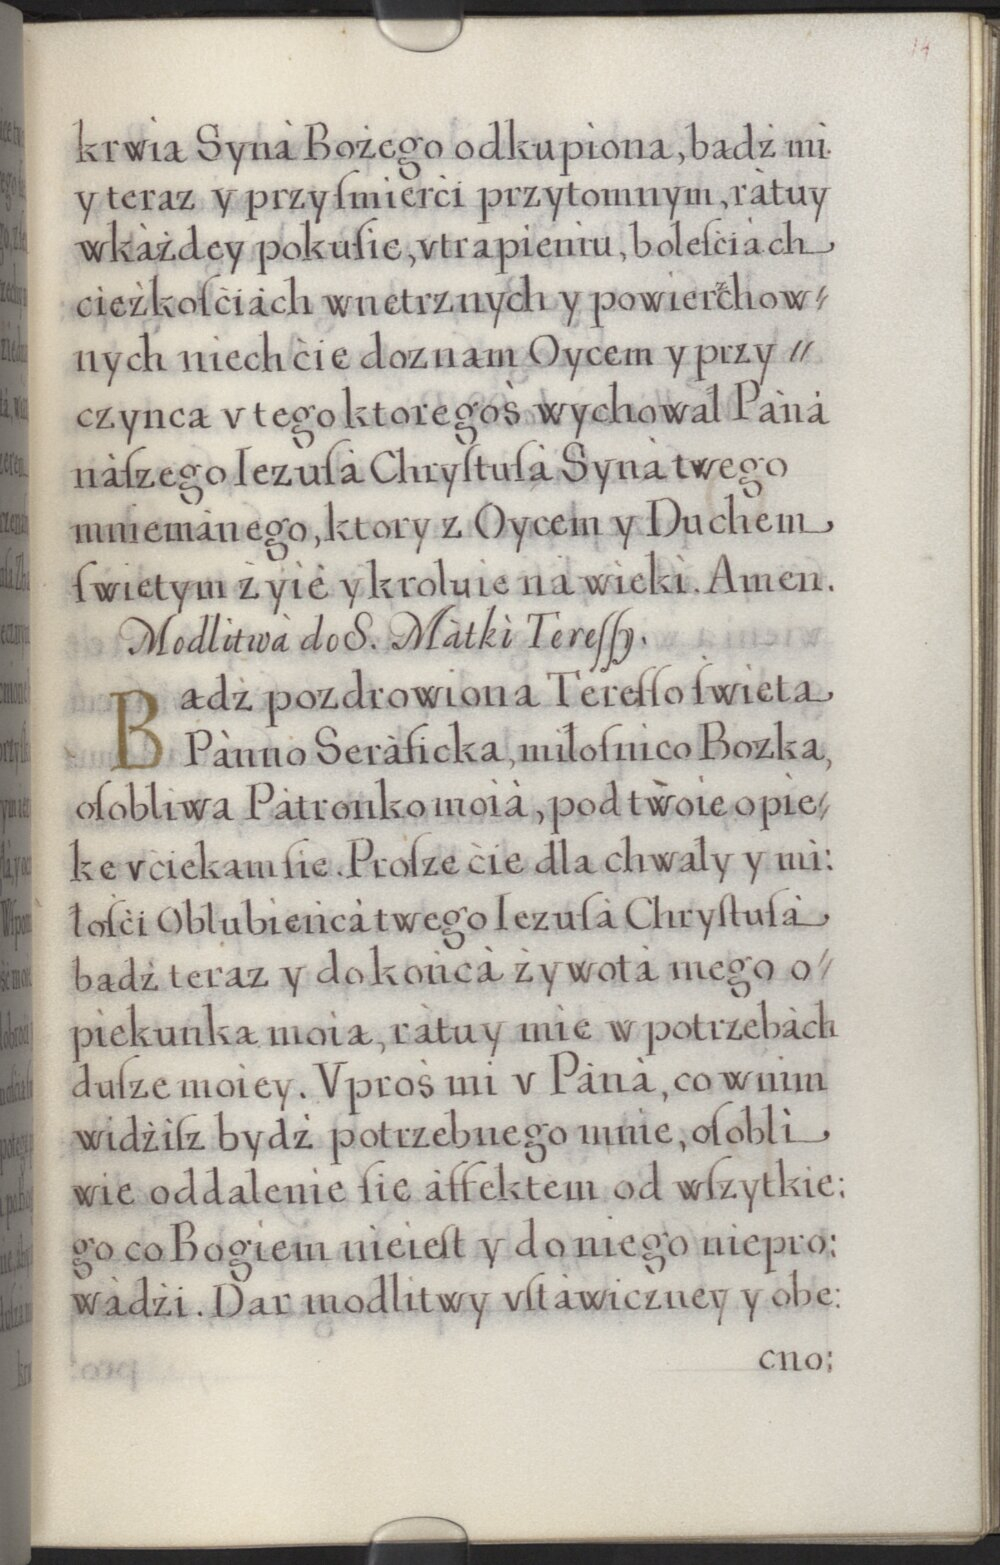 14
krwia Synà Bożego odkupiona, badź mi
y teraz y przy ſmierći przytomnym, ràtuy
wkàżdey pokuſie, vtrapieniu, boleſciach
cieżkoſćiàch wnetrznych y powierzchow⸗
nych niech ćie doznam Oycem y przy⸗
czynca v tego ktoregoś wychowal Pànà
nàſzego Iezuſà Chryſtuſà Synà twego
mniemànego, ktory z Oycem y Duchem
ſwietym żyie y kroluie na wieki. Amen.
Modlitwà do S. Màtki Tereſſy.
Badź pozdrowiona Tereſſo ſwieta
Pànno Seràficka, miłoſnico Bozka,
oſobliwa Pàtronko moià, pod twoie opie⸗
ke vciekam ſie. Proſze ćie dla chwały y mi:
łoſći Oblubieńcà twego Iezuſà Chryſtuſà
badź teraz y do końcà żywotà mego o⸗
piekunka moia, ràtuy mie w potrzebàch
duſze moiey. Vproś mi v Pànà, co w nim
widźiſz bydź potrzebnego mnie, oſobli
wie oddalenie ſie àffektem od wſzytkie:
go co Bogiem nieieſt y do niego niepro:
wàdźi. Dar modlitwy vſtàwiczney y obe:
cno: